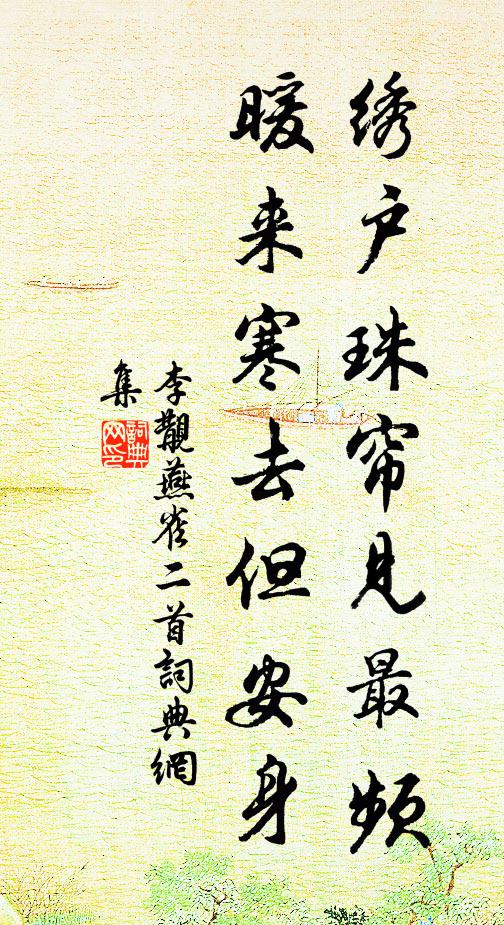 绣户珠帘见最频
暖来寒去但安身
李觏燕雀二首詞典網
集
詞典網印